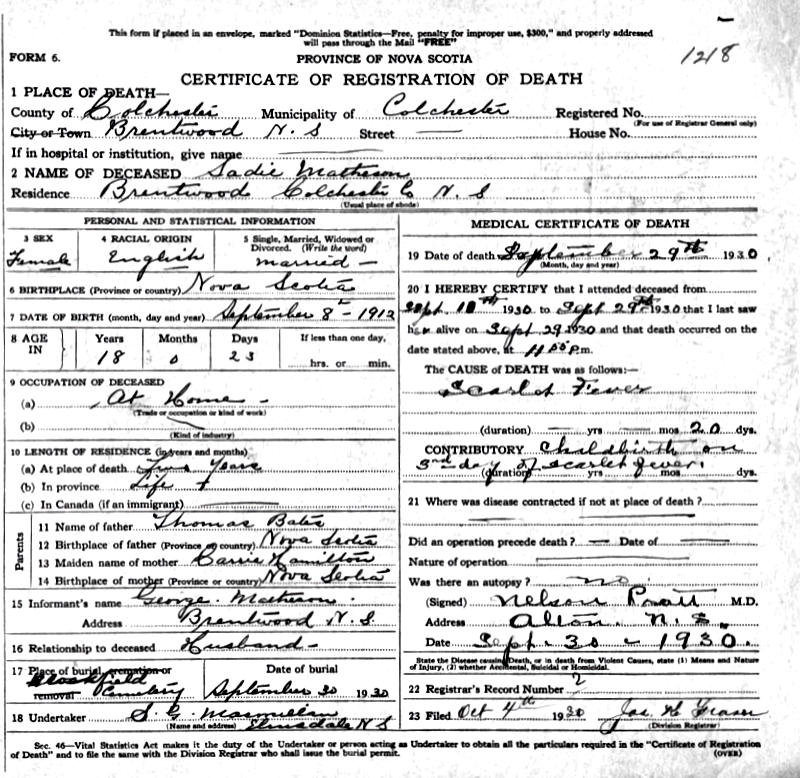 This form if placed in an envelope, marked "Dominion Statistics—Free, penalty for improper use, $300," and properly addressed
will pass through the Mail "FREE"
1218
FORM 6.
PROVINCE OF NOVA SCOTIA
CERTIFICATE OF REGISTRATION OF DEATH
1 PLACE OF DEATH—
County of Colchester Municipality of Colchester Registered No.
(For use of Registrar General only)
City or Town Brentwood N. S Street — House No.
If in hospital or institution, give name
2 NAME OF DECEASED Sadie Matheson
Residence Brentwood Colchester Co N. S
(Usual place of abode)
PERSONAL AND STATISTICAL INFORMATION
3 SEX
Female
4 RACIAL ORIGIN
English
5 Single, Married, Widowed or
Divorced. (Write the word)
married —
6 BIRTHPLACE (Province or country) Nova Scotia
7 DATE OF BIRTH (month, day and year) September 8th – 1912
8 AGE IN
Years Months Days If less than one day,
18 0 23 hrs. or min.
9 OCCUPATION OF DECEASED
(a) At Home —
(Trade or occupation or kind of work)
(b)
(Kind of industry)
10 LENGTH OF RESIDENCE (in years and months)
(a) At place of death Years
(b) In province Life
(c) In Canada (if an immigrant)
Parents
11 Name of father Thomas Bates
12 Birthplace of father (Province or country) Nova Scotia
13 Maiden name of mother Carrie Hamilton
14 Birthplace of mother (Province or country) Nova Scotia
15 Informant's name George Matheson
Address Brentwood N. S.
16 Relationship to deceased Husband —
17 Place of burial, cremation or
removal Brookfield Cemetery
Date of burial
September 30 1930
18 Undertaker S. G.
(Name and address) Elmsdale N S
MEDICAL CERTIFICATE OF DEATH
19 Date of death September 29th 1930
(Month, day and year)
20 I HEREBY CERTIFY that I attended deceased from
Sept. 10th 1930 to Sept 29th 1930 that I last saw
her alive on Sept 29 1930 and that death occurred on
date stated above, at 11 55 P.m.
The CAUSE of DEATH was as follows:—
Scarlet Fever
(duration) — yrs — mos 20 dys.
CONTRIBUTORY Childbirth on
3rd day of scarlet fever.
(duration) yrs mos dys.
21 Where was disease contracted if not at place of death?
Did an operation precede death? — Date of —
Nature of operation
Was there an autopsy? no.
(Signed) Nelson Pratt M.D.
Address Alton, N. S.
Date Sept. 30 – 1930.
State the Disease causing Death, or in death from Violent Causes, state (1) Means and Nature
of Injury, (2) whether Accidental, Suicidal or Homicidal.
22 Registrar's Record Number 2
23 Filed Oct 4th 1930 Jas. H Fraser
(Division Registrar)
Sec. 46—Vital Statistics Act makes it the duty of the Undertaker or person acting as Undertaker to obtain all the particulars required in the "Certificate of Registration
of Death" and to file the same with the Division Registrar who shall issue the burial permit.
(OVER)